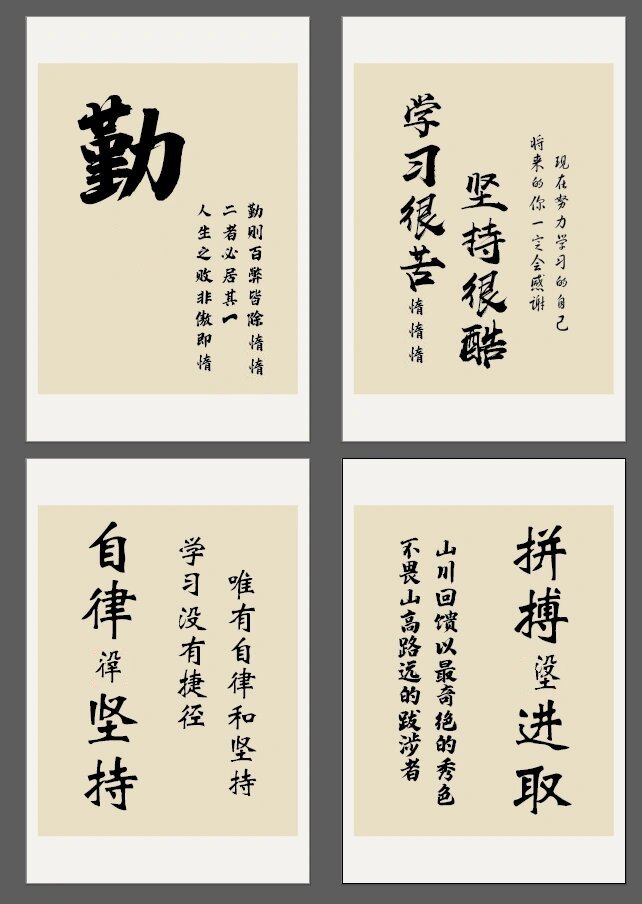 勤
人生之败非傲即惰
二者必居其一
勤则百弊皆除惰惰
学习很苦惰惰惰
坚持很酷
将来的你一定会感谢
现在努力学习的自己
自律坚持
学习没有捷径
唯有自律和坚持
不畏山高路远的跋涉者
山川回馈以最奇绝的秀色
拼搏进取